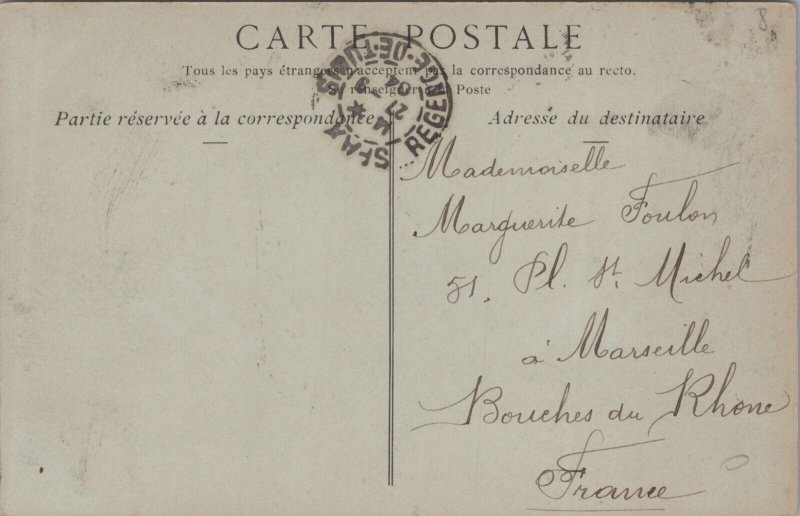 CARTE POSTALE
Tous les pays étrangers n'acceptent pas la correspondance au recto.
Se renseigner à la Poste
Partie réservée à la correspondance
Adresse du destinataire
RÉGENCE-DE-TUNIS
SFAX
14
27
8
Mademoiselle
Marguerite Foulon
51, Pl. St. Michel
à Marseille
Bouches du Rhone
France